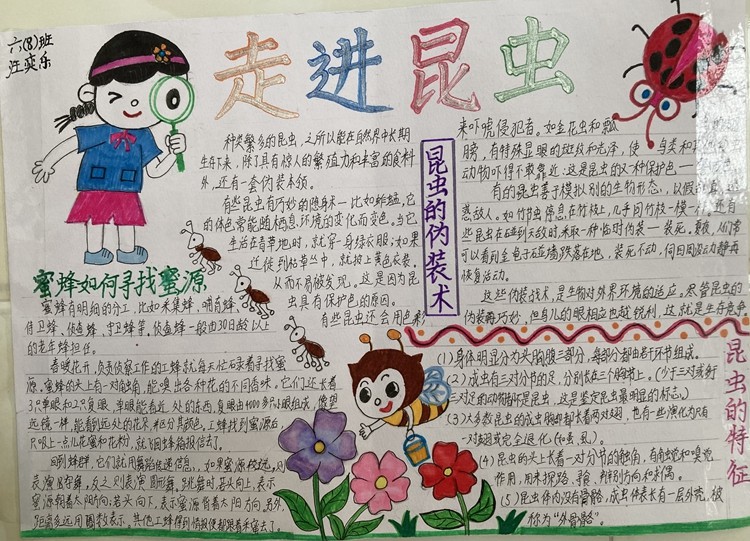 六(8)班
汪奕乐
走进昆虫
种类繁多的昆虫，之所以能在自然界中长期
生存下来，除了具有惊人的繁殖力和丰富的食料
外，还有一套伪装本领。
有些昆虫有巧妙的隐身术—比如蚱蜢，它
的体色常能随栖息环境的变化而变色。当它
生活在青草地时，就穿一身绿衣服；如果
迁徙到枯草丛中，就披上黄色衣装，
从而不易被发现。这是因为昆
虫具有保护色的原因。
有些昆虫还会用色彩
昆虫的伪装术
来吓唬侵犯者。如金花虫和瓢
有特殊显眼的斑纹和光泽，使
动物吓得不敢靠近，这是昆虫的又种保护色
有的昆虫善于模拟别的生物形态，以假
惑敌人。如竹节虫停息在竹枝上，几乎同竹枝一模一样。还有
些昆虫在碰到天敌时采取一种临时伪装—装死。夏夜，人们常
可以看到金龟子碰壁跌落在地，装死不动，伺周围没动静再
恢复活动。
这些伪装战术，是生物对外界环境的适应。尽管昆虫的
伪装再巧妙，但鸟儿的眼相应也越锐利，这就是生存竞争
蜜蜂如何寻找蜜源
蜜蜂有明细的分工，比如采集蜂、哺育蜂、
侍卫蜂、侦查蜂、守卫蜂等。侦查蜂一般由30日龄以上
的老年蜂担任。
春暖花开，负责侦察工作的工蜂就每天忙碌着寻找蜜
源。蜜蜂的头上有一对触角，能嗅出各种花的不同香味。它们还长着
3只单眼和2只复眼，单眼能看近处的东西，复眼由4000多只小眼组成，像望
远镜一样，能看到远处的花朵，和区分其颜色。工蜂找到蜜源后，
只吸上一点儿花蜜和花粉，就飞回蜂箱报信去了。
回到蜂群，它们就用舞蹈传递信息，如果蜜源较远，则
表演8字舞，反之则表演圆形舞。跳舞时若头向上，表示
蜜源朝着太阳方向；若头向下，表示蜜源背着太阳方向。另外，
距离多远用圈数表示。其他工蜂得到情报便都跟着采蜜去了。
昆虫的特征
(1)身体明显分为头胸腹三部分，每部分都由若干环节组成。
(2)成虫有三对分节的足，分别长在三个胸节上。(少于三对或多于
三对足的动物都不是昆虫，这是鉴定昆虫最明显的标志。)
(3)大多数昆虫的成虫胸部都长着两对翅，也有一些演化为只有
一对翅或完全退化(如蚤、虱)。
(4)昆虫的头上长着一对分节的触角，有触觉和嗅觉
作用，用来探路、寻食、辨别方向和求偶。
(5)昆虫体内没有骨骼，成虫体表长有一层外壳，被
称为“外骨骼”。